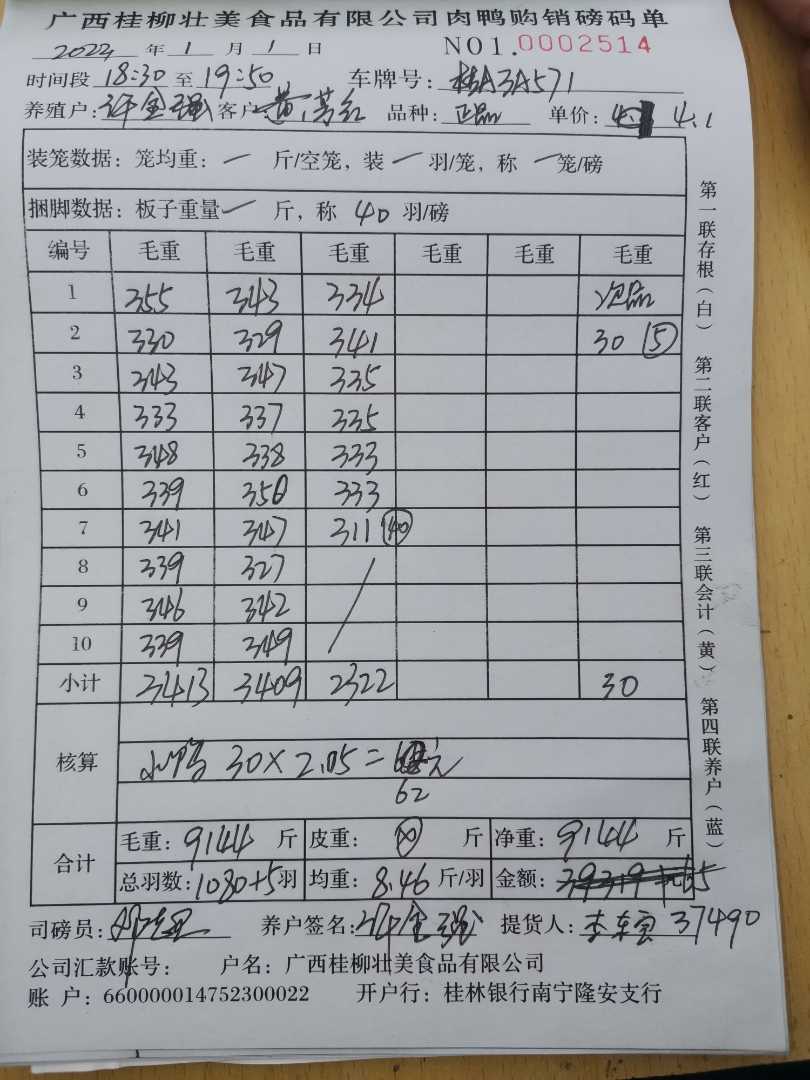 广西桂柳壮美食品有限公司肉鸭购销磅码单
2022年1月1日 NO1.0002514
时间段 18:30 至 19:50 车牌号: 桂A3A571
养殖户: 许金强 客户: 黄芳红 品种: 正品 单价: 4.1
装笼数据: 笼均重: 一 斤/空笼, 装 一 羽/笼, 称 一 笼/磅
捆脚数据: 板子重量 一 斤, 称 40 羽/磅
编号 毛重 毛重 毛重 毛重 毛重 毛重
1 355 343 334 次品
2 330 329 341 30 (5)
3 343 347 335
4 333 337 335
5 348 338 333
6 339 350 333
7 341 347 311 (40)
8 339 327
9 346 342
10 339 349
小计 3413 3409 2322 30
核算
小鸭 30×2.05= 元
62
合计 毛重: 9144 斤 皮重: 斤 净重: 9144 斤
总羽数: 1080+5 羽 均重: 8.46 斤/羽 金额: 39319
司磅员: 养户签名: 许金强 提货人: 37490
公司汇款账号: 户名: 广西桂柳壮美食品有限公司
账户: 660000014752300022 开户行: 桂林银行南宁隆安支行
第一联存根(白) 第二联客户(红) 第三联会计(黄) 第四联养户(蓝)